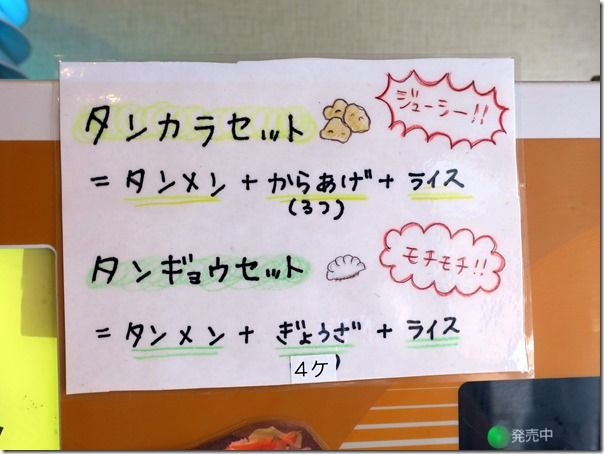 タンカラセット
ジューシー!!
= タンメン + からあげ + ライス
(3つ)
タンギョウセット
モチモチ!!
= タンメン + ぎょうざ + ライス
4ケ)
発売中